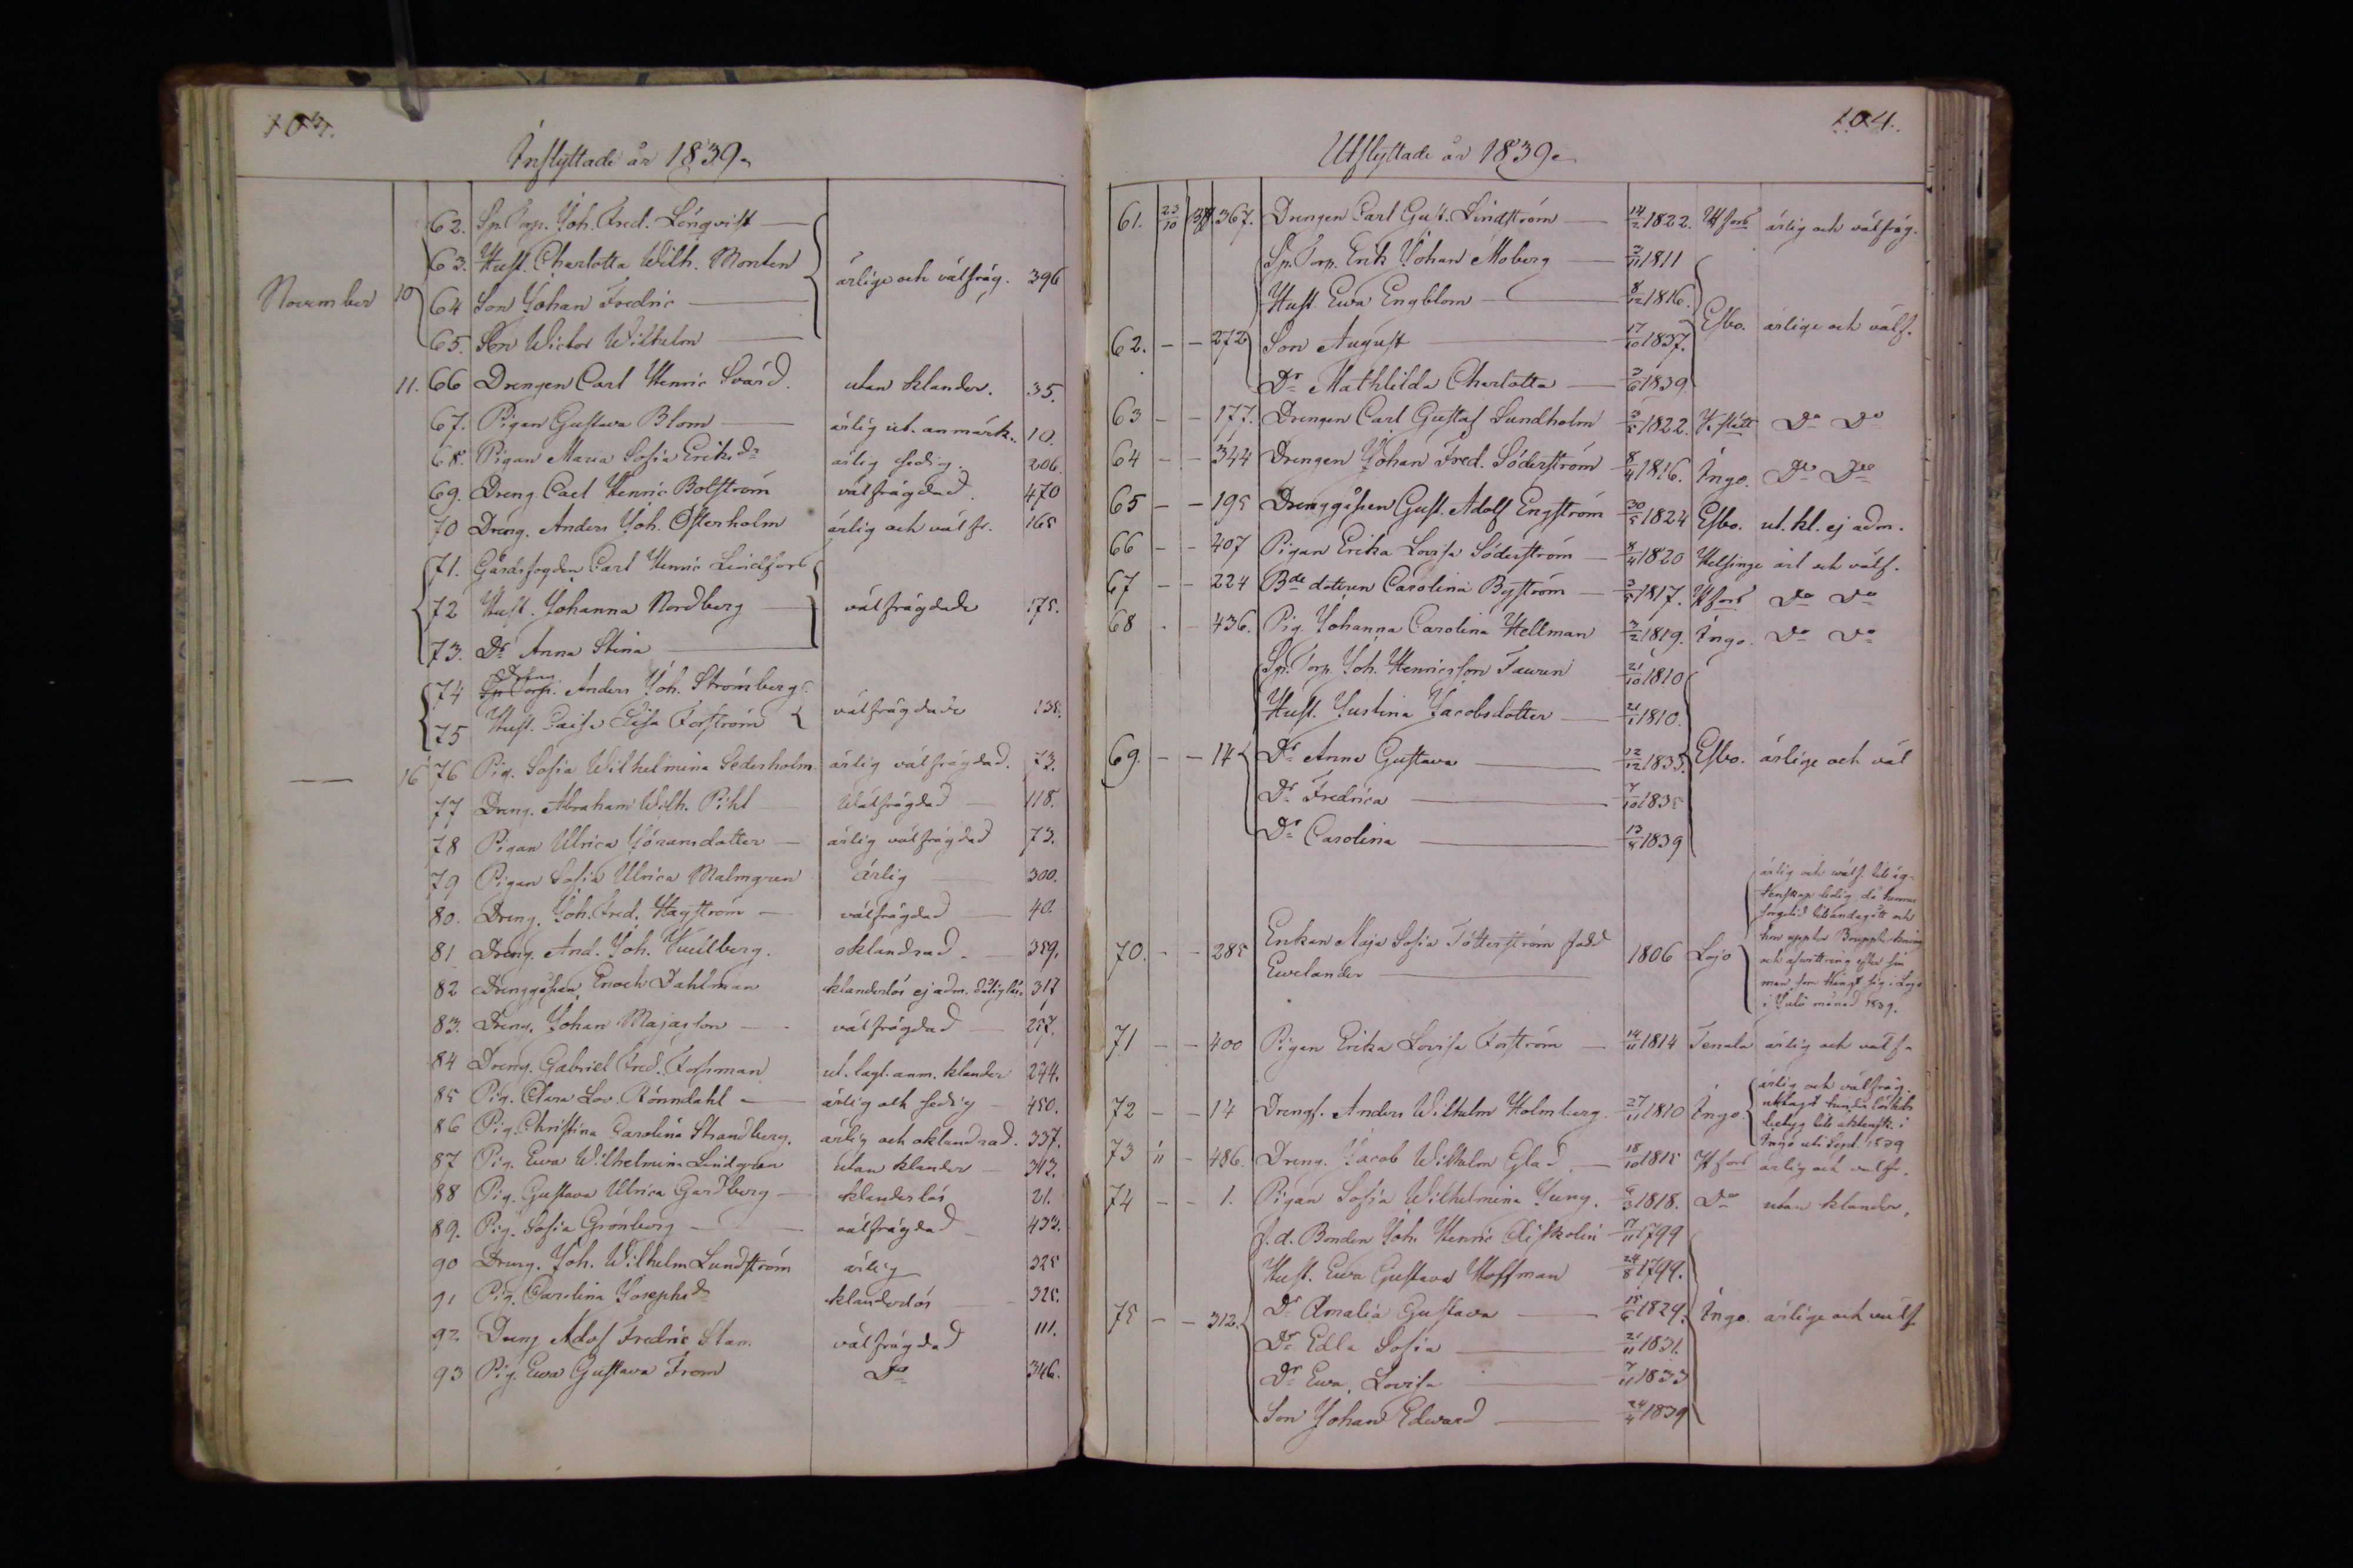 Inflyttade år 1839.
62. Sp. Torp. Joh. Fred. Lönqvist
63. Hust. Charlotta Wilh. Monten
November 10 64 Son Johan Fredric ärlige och välfräg. 396
65. Son Wictor Wilhelm
11. 66 Drengen Carl Henric Svärd. utan klander. 35.
67. Pigan Gustava Blom ärlig ut. anmärk. 10.
68. Pigan Maria Sofia Eriksdr ärlig sedig. 206.
69. Dreng. Carl Henric Bolström välfrägdad. 470
70 Dreng. Anders Joh. Österholm ärlig och välfr. 165
71. Gårdsfogden Carl Henric Lindfors
72 Hust. Johanna Nordberg välfrägdade 175.
73. Dr Anna Stina
74 Anders Joh. Strömberg
75 Hust. Caisa Lisa Forström välfrägdade 138.
16 76 Pig. Sofia Wilhelmina Sederholm. ärlig välfrägdad. 73.
77 Dreng. Abraham Wilh. Pihl Wälfrägdad 118.
78 Pigan Ulrica Göransdotter ärlig välfrägdad 73.
79 Pigan Sofia Ulrica Malmgren Ärlig 300.
80. Dreng. Joh. Fred. Hagström välfrägdad 40.
81 Dreng. And. Joh. oklandrad. 359.
82 Drenggåssen Enoch Dahlman klanderlös ej adm. 317
83. Dreng. Johan Majasson välfrägdad 257.
84 Dreng. Gabriel Fred. Forsman ut. lagl. anm. klander 244.
85 Pig. Clara Lov. Rönndahl ärlig och sedig 450.
86 Pig. Christina Carolina Strandberg. ärlig och oklandrad. 337.
87 Pig. Ewa Wilhelmina Lindgren utan klander 313.
88 Pig. Gustava Ulrica Gardberg klanderlös 21.
89. Pig. Sofia Grönberg välfrägdad 433.
90 Dreng. Joh. Wilhelm Lundström ärlig 325
91 Pig. Carolina Josephsdr klanderlös 325.
92 Dreng Adof Fredric Stam välfrägdad 111.
93 Pig. Ewa Gustava From Do 346.
104.
Utflyttade år 1839
61. 23/10 367. Drengen Carl Gust. Lindström 14/2 1822. Hfors ärlig och välfräg.
Sp. Torp. Erik Johan Moberg 3/11 1811
Hust. Ewa Engblom 8/12 1816.
62. - - 272 Son August 17/10 1837. Esbo. ärlige och välf.
Dr Mathhilda Charlotta 3/6 1839
63 - - 177. Drengen Carl Gustaf Lundholm 3/5 1822. Do Do
64 - - 344 Drengen Johan Fred. Söderström 8/4 1816. Ingo. Do Do
65 - - 195 Drenggåssen Gust. Adolf Engström 30/5 1824 Esbo. ut. kl. ej adm.
66 - - 407 Pigan Erika Lovisa Söderström 8/4 1820 Helsinge ärl och välf.
67 - - 224 Bde dottren Carolina Byström 3/5 1817. Hfors Do Do
68 - - 436. Pig. Johanna Carolina Hellman 3/2 1819. Ingo. Do Do
Sp. Torp. Joh. Henricsson Tauren 21/10 1810
Hust. Justina Jacobsdotter 21/1 1810.
69. - - 14 Dr Anna Gustava 12/12 1833. Esbo. ärlige och väl
Dr Fredrica 7/10 1835
Dr Carolina 13/4 1839
70. - - 285 Enkan Maja Sofia Tötterström född 1806 Lojo
Ewelander
man som hängt sig i Lojo
i Julii månad 1839.
71 - - 400 Pigan Erika Lovisa Forström 14/11 1814 Tenala ärlig och välf
ärlig och välfräg.
72 - - 14 Drengs. Anders Wilhelm Holmberg. 27/11 1810 Ingo.
Ingo uti Sept. 1839
73 - 486. Dreng. Jacob Wilhelm Glad. 18/10 1815 Hfors ärlig och välfr.
74 - - 1. Pigan Sofia Wilhelmina Jung. 6/3 1818. Do utan klander.
f.d. Bonden Joh. Henric 17/11 1799
Hust. Ewa Gustava Hoffman 24/8 1799.
75 - - 312. Dr Amalia Gustava 15/6 1829. Ingo. ärlige och välf
Dr Edla Sofia 21/11 1831.
Dr Ewa Lovisa 7/11 1833
Son Johan Edward 24/4 1839